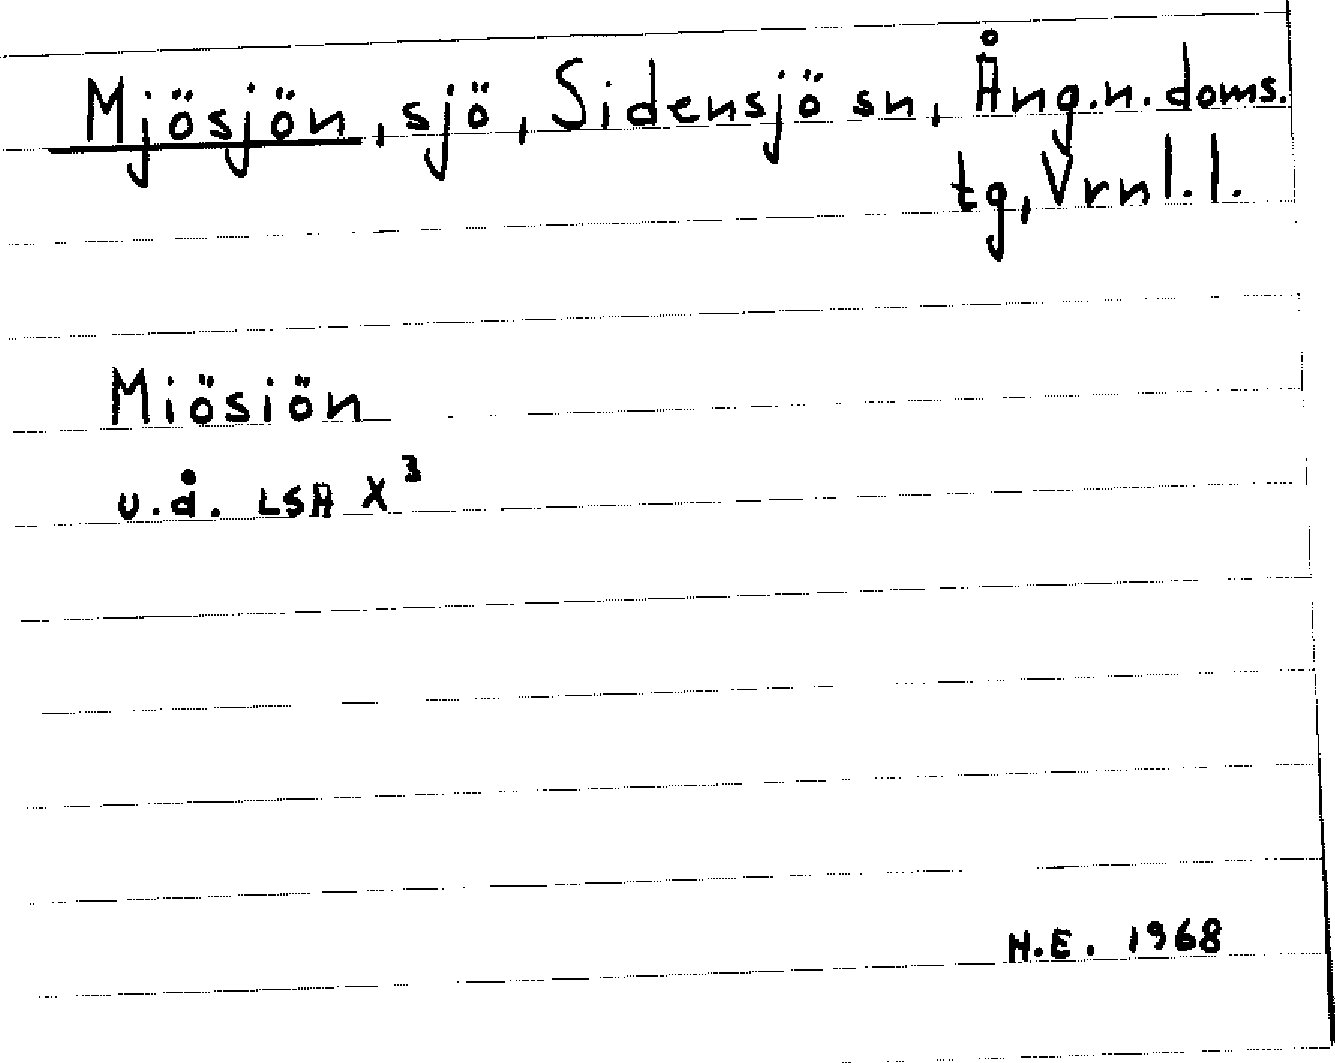 Mjösjön, sjö, Sidensjö sn, Ång.n.doms.
tg, Vrnl.l.
Miösiön
u.å. LSA X³
H.E. 1968